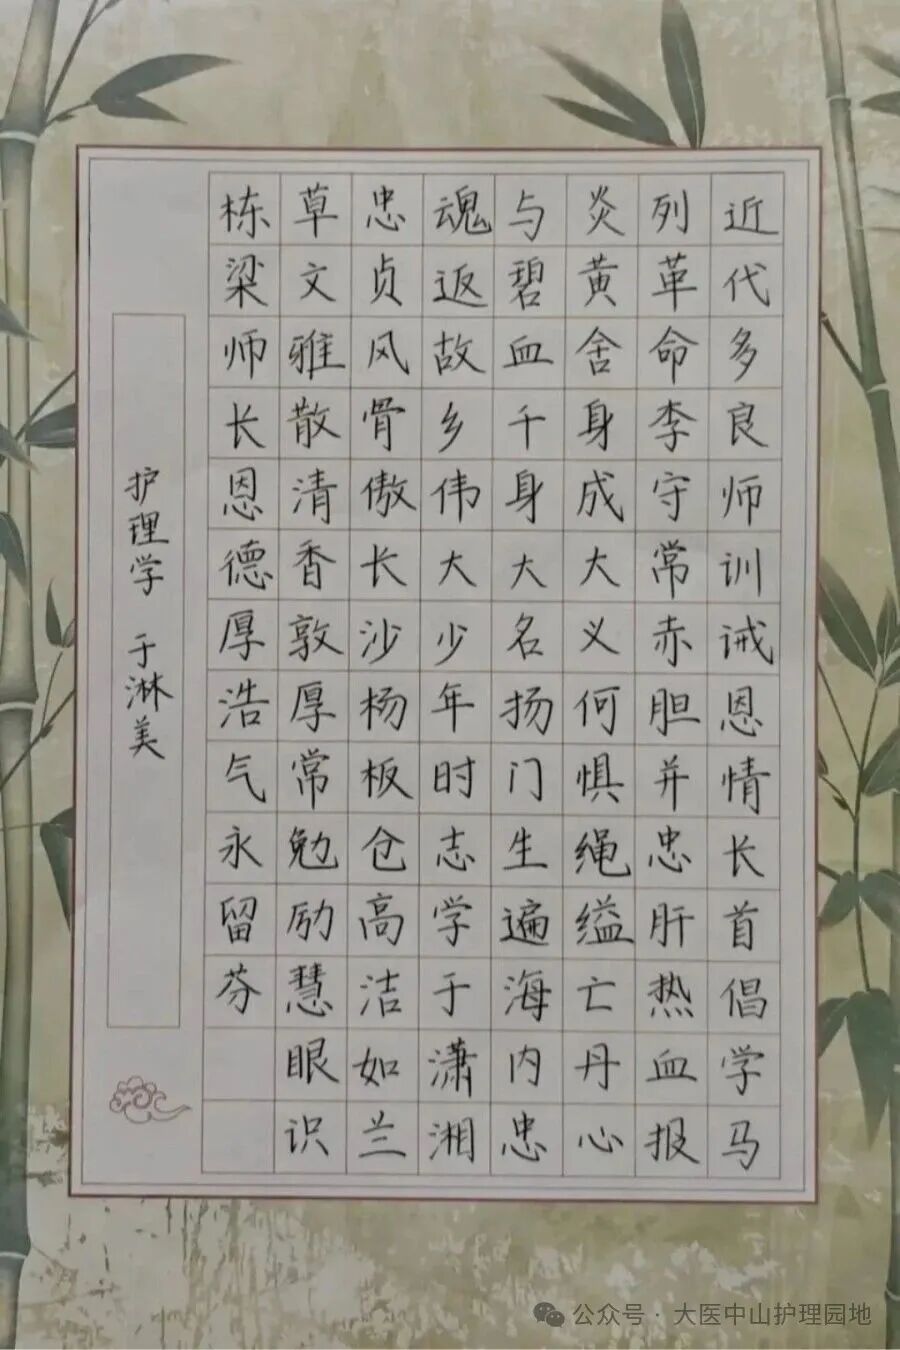 近代多良师训诫恩情长首倡学马
列革命李守常赤胆并忠肝热血报
炎黄舍身成大义何惧绳缢亡丹心
与碧血千身大名扬门生遍海内忠
魂返故乡伟大少年时志学于潇湘
忠贞风骨傲长沙杨板仓高洁如兰
草文雅散清香敦厚常勉励慧眼识
栋梁师长恩德厚浩气永留芬
护理学 于淋美
公众号·大医中山护理园地